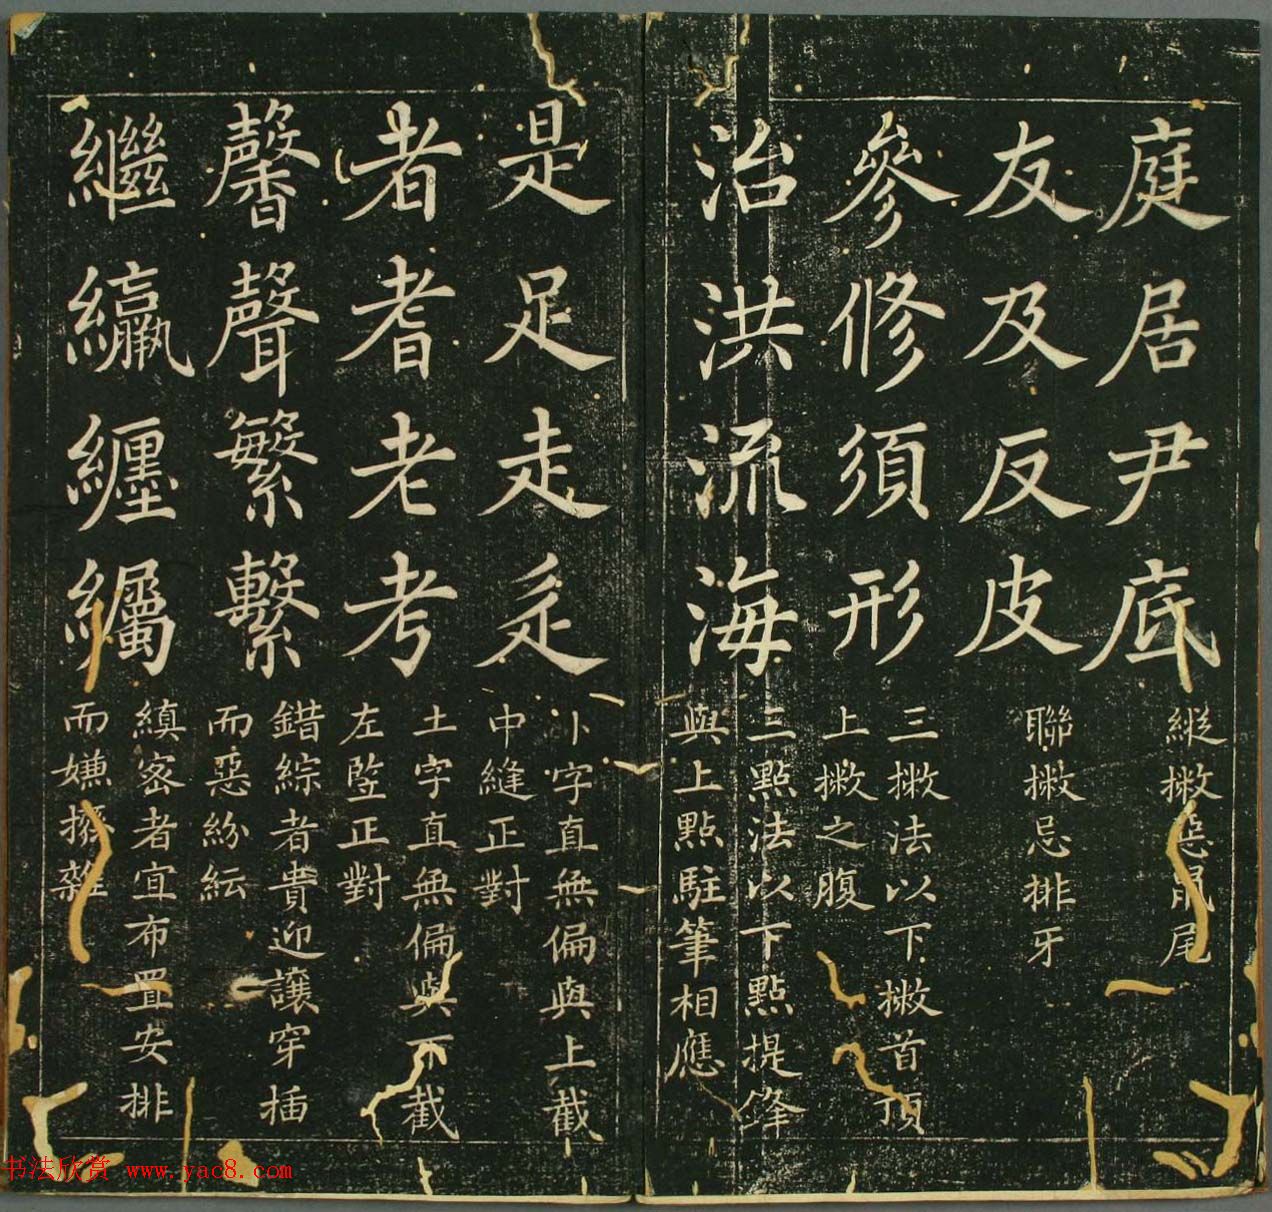 庭居尹底
縱撇惡鼠尾
友及反皮
聯撇忌排牙
參修須形
三撇法以下撇首頂
上撇之腹
治洪流海
三點法以下點提鋒
與上點駐筆相應
是足走辵
卜字直無偏與上截
中縫正對
者耆老考
土字直無偏與下截
左竪正對
馨聲繁繫
錯綜者貴迎讓穿插
而惡紛紜
繼纑纏纚
縝密者宜布置安排
而嫌撥雜
书法欣赏 www.yac8.com